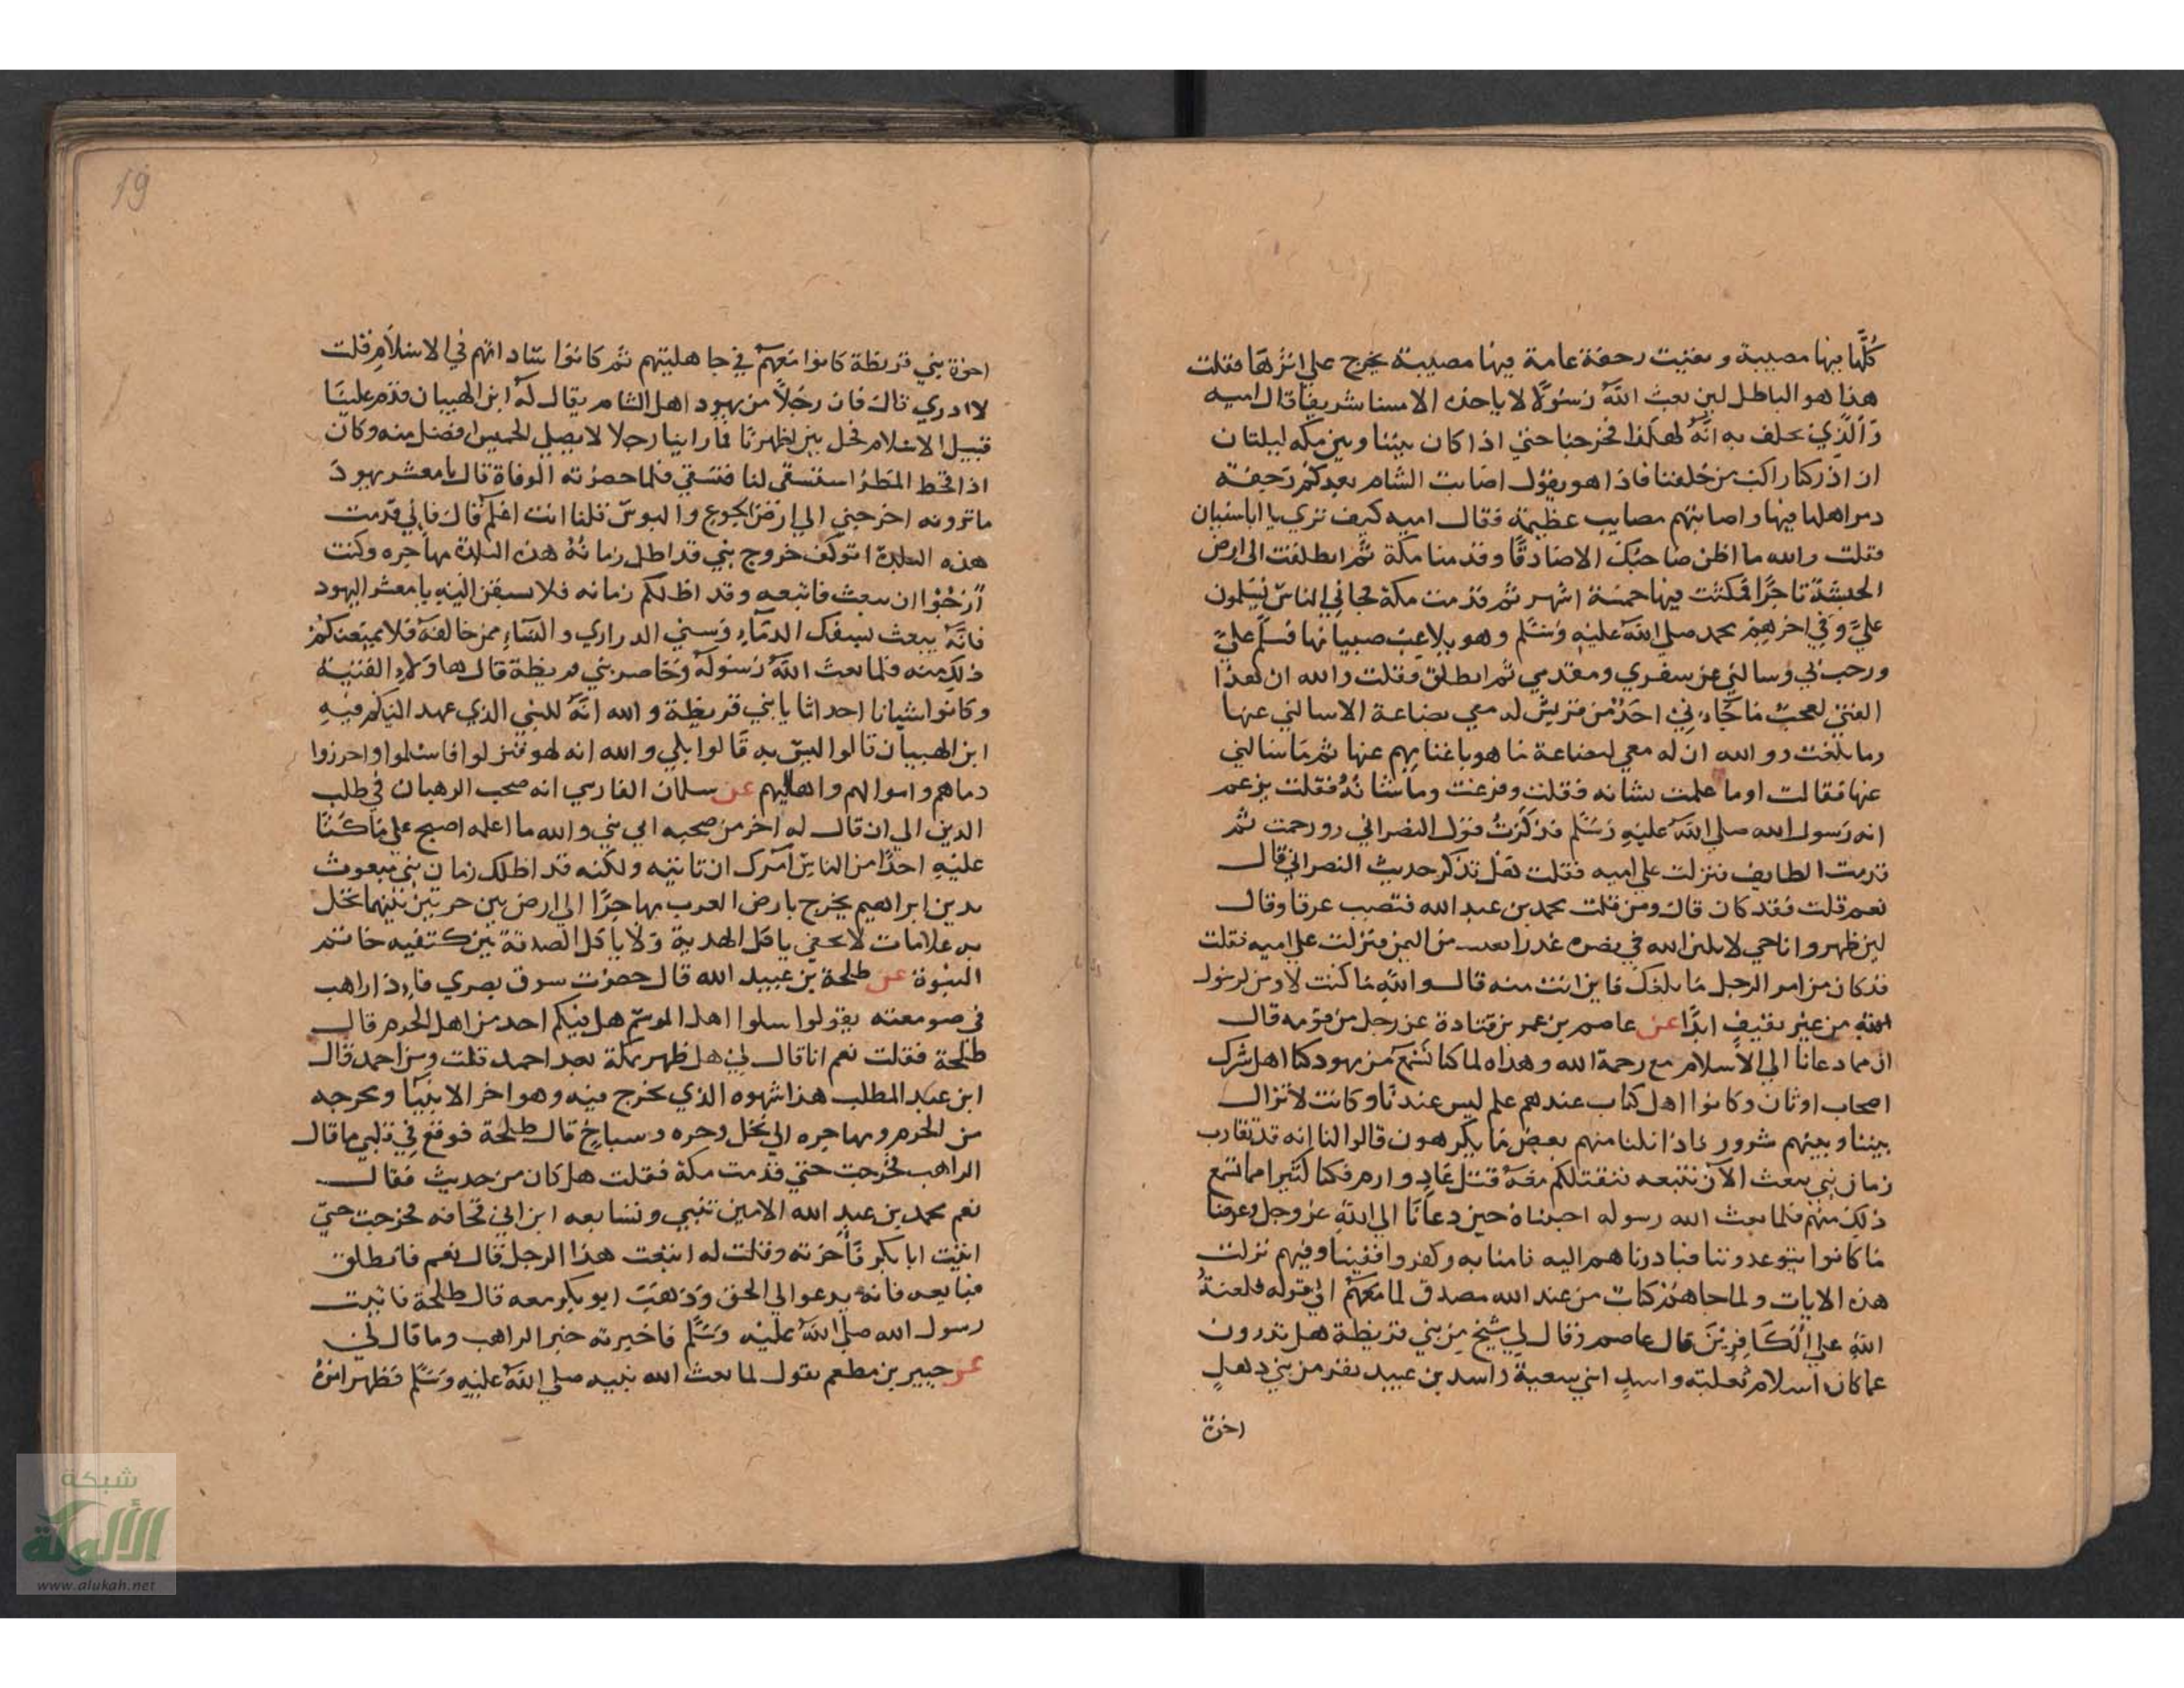 كُلَّها فيها مصيبة وبقيت رجفة عامة فيها مصيبة يخرج على اثرها فقلت
هذا هو الباطل لين بعث الله رَسُولًا لا ياخذه الا مسنا شريفا قال اميه
وَالَّذِي يحلف به انَّهُ لهكذا فخرجنا حتى اذا كان بيننا وبين مكه ليلتان
اذ اذركنا راكب من خلفنا فاذا هو يقول اصابت الشام بعدكم رَجفة
دمر اهلها فيها واصابتهم مصايب عظيمة فقال اميه كيف ترى يا اباسفيان
فقلت والله ما اظن صاحبك الا صادقًا وقدمنا مكة ثم انطلقت الى ارض
الحبشة تاجرًا فمكثت فيها خمسة اشهر ثم قدمت مكة فجاني الناس يسلمون
عليَّ وفي اخرهم محمد صلي الله عليه وسلم وهو يلاعب صبيانها فسلم عليَّ
ورحب بي وسالني عن سفري ومقدمي ثم انطلق فقلت والله ان هذا
الفتى لعجب ما جاءني احد من قريش له معي بضاعة الا سالني عنها
وما بلغت والله ان له معي لبضاعة ما هو باغناهم عنها ثم ما سالني
عنها فقالت اوما علمت بشانه فقلت وفزعت وما شانه فقلت يزعم
انه رسول الله صلي الله عليه وسلم فذكرت قول النصراني ووجمت ثم
قدمت الطايف فنزلت على اميه فقلت هل تذكر حديث النصراني قال
نعم قلت فقد كان قال ومن قلت محمد بن عبد الله فتصبب عرقا وقال
لين ظهر وانا حي لابلين الله في نصره عذرا من اليمن فنزلت على اميه فقلت
قد كان من امر الرجل ما بلغك فاين انت منه قال والله ما كنت لاومن لرسول
الله من غير ثقيف ابدًا عن عاصم بن عمر بن قتادة عن رجل من قومه قال
ان مما دعانا الي الاسلام مع رحمة الله وهداه لما كنا نسمع من يهود كنا اهل شرك
اصحاب اوثان وكانوا اهل كتاب عندهم علم ليس عندنا وكانت لا تزال
بيننا وبينهم شرور فاذا نلنا منهم بعض ما يكرهون قالوا لنا انه قد تقارب
زمان نبي يبعث الآن نتبعه فنقتلكم معه قتل عاد وارم فكنا كثيرا مما نسمع
ذلك منهم فلما بعث الله رسوله اجبناه حين دعانا الي الله عز وجل وعرفنا
ما كانوا يتوعدوننا فبادرناهم اليه فامنا به وكفروا ففينا وفيهم نزلت
هذه الايات ولما جاهم كتاب من عند الله مصدق لما معهم الى قوله فلعنة
الله على الكافرين قال عاصم وقال لي شيخ من بني قريظة هل تدرون
عما كان اسلام ثعلبة واسيد ابني سعية واسد بن عبيد نفر من بني دهل
اخوة
19
اخوة بني قريظة كانوا معهم في جاهليتهم ثم كانوا ساداتهم في الاسلام قلت
لا ادري قال فان رجلاً من يهود اهل الشام يقال له ابن الهيبان قدم علينا
قبيل الاسلام فحل بين اظهرنا فما راينا رجلا لا يصلي الخميس افضل منه وكان
اذا قحط المطر استسقى لنا فتسقي فلما حضرته الوفاة قال يا معشر يهود
ما ترونه اخرجني الي ارض الجوع والبوس قلنا انت اعلم قال فاني قدمت
هذه البلدة اتوكف خروج نبي قد اظل زمانه هذه البلدة مهاجره وكنت
ارجوا ان يبعث فاتبعه وقد اظلكم زمانه فلا تسبقن اليه يا معشر اليهود
فانه يبعث بسفك الدماء وسبي الدراري والنساء ممن خالفه فلا يمنعنكم
ذلك منه فلما بعث الله رسوله وحاصر بني قريظة قال هاولاء الفتية
وكانوا شبانا احداثا يا بني قريظة والله انه للنبي الذي عهد اليكم فيه
ابن الهيبان قالوا ليس به قالوا بلي والله انه لهو فنزلوا فاسلموا واحرزوا
دماهم واموالهم واهاليهم عن سلمان الفارسي انه صحب الرهبان في طلب
الدين الي ان قال له اخر من صحبه اي بني والله ما اعلمه اصبح علي ما كنا
عليه احدًا من الناس آمرك ان تاتيه ولكنه قد اظلك زمان نبي مبعوث
بدين ابراهيم يخرج بارض العرب مهاجرًا الي ارض بين حرتين بينهما نخل
به علامات لا تخفي ياكل الهدية ولا ياكل الصدقة بين كتفيه خاتم
النبوة عن طلحة بن عبيد الله قال حضرت سوق بصري فاذا راهب
في صومعته يقول سلوا اهل الموسم هل فيكم احد من اهل الحرم قال
طلحة فقلت نعم انا قال لي هل ظهر بمكة بعد احمد قلت ومن احمد قال
ابن عبد المطلب هذا شهره الذي يخرج فيه وهو اخر الانبيا ومخرجه
من الحرم ومهاجره الي نخل وحره وسباخ قال طلحة فوقع في قلبي ما قال
الراهب فخرجت حتي قدمت مكة فقلت هل كان من حديث فقال
نعم محمد بن عبد الله الامين تنبي وتتابعه ابن ابي قحافه فخرجت حتي
اتيت ابا بكر فاخبرته وقلت له اتبعت هذا الرجل قال نعم فانطلق
فبايعه فانه يدعو الي الحق وذهب ابو بكر معه قال طلحة فاتيت
رسول الله صلي الله عليه وسلم فاخبرته خبر الراهب وما قال لي
عن جبير بن مطعم يقول لما بعث الله نبيه صلي الله عليه وسلم فظهر امره
شبكة
الألوكة
www.alukah.net